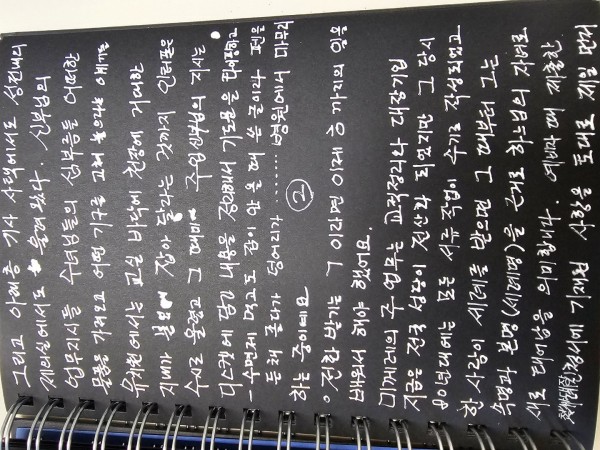 그리고 아래층 기사 사택에서도 성전내의
제의실에서도 울려 왔다. 신부님의
업무지시들 수녀님들의 심부름들 어떠한
물품을 가져오고 어떤 기구를 고쳐 놓으라는 얘기를
유치원에서는 교실 바닥에 천장에 거대한
지네가 잡아 달라는 것까지 인터폰은
수시로 울렸고 그 때마다 주임신부님의 지시는
디스켓에 담긴 내용을 정리해서 기도문을 타이핑하고
- 수면제 먹고도 잠이 안 올 때 쓴 글이라 펜을
든채 졸다가 덩어리가 ........ 병원에서 마무리
하는 중이에요 ②
○ 전화 받기는 그 이라면 이제 층까지의 일을
배워서 해야 했어요.
주 업무는 교적정리와 대장기입
지금은 전국 성당이 전산화 되었지만 그 당시
90년대에는 모든 서류 작업이 수기로 작성되었고
한 사람이 세례를 받으면 그 때부터 그는
속명과 본명(세례명)을 근거로 하느님의 자녀로
새로 태어남을 의미합니다. 예비자 때 제출한
신청서에 기재된 사항을 토대로